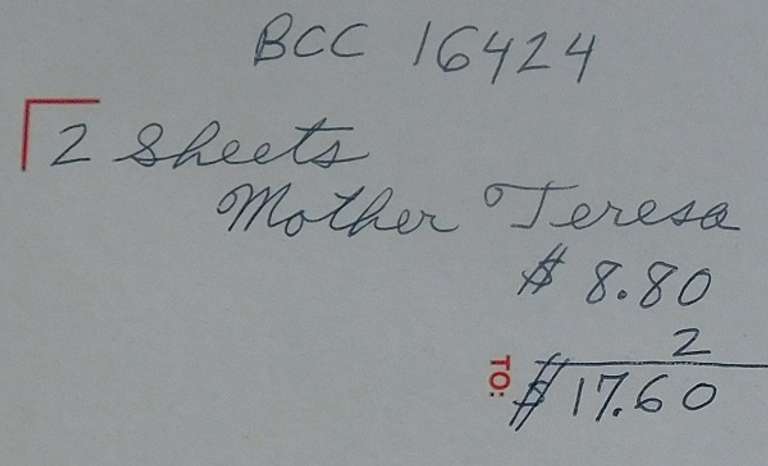 BCC 16424
2 Sheets
Mother Teresa
$ 8.80
2
TO:
$17.60